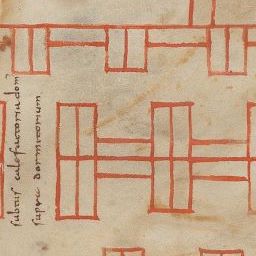 subtus calefactoria dom
supra dormitorium